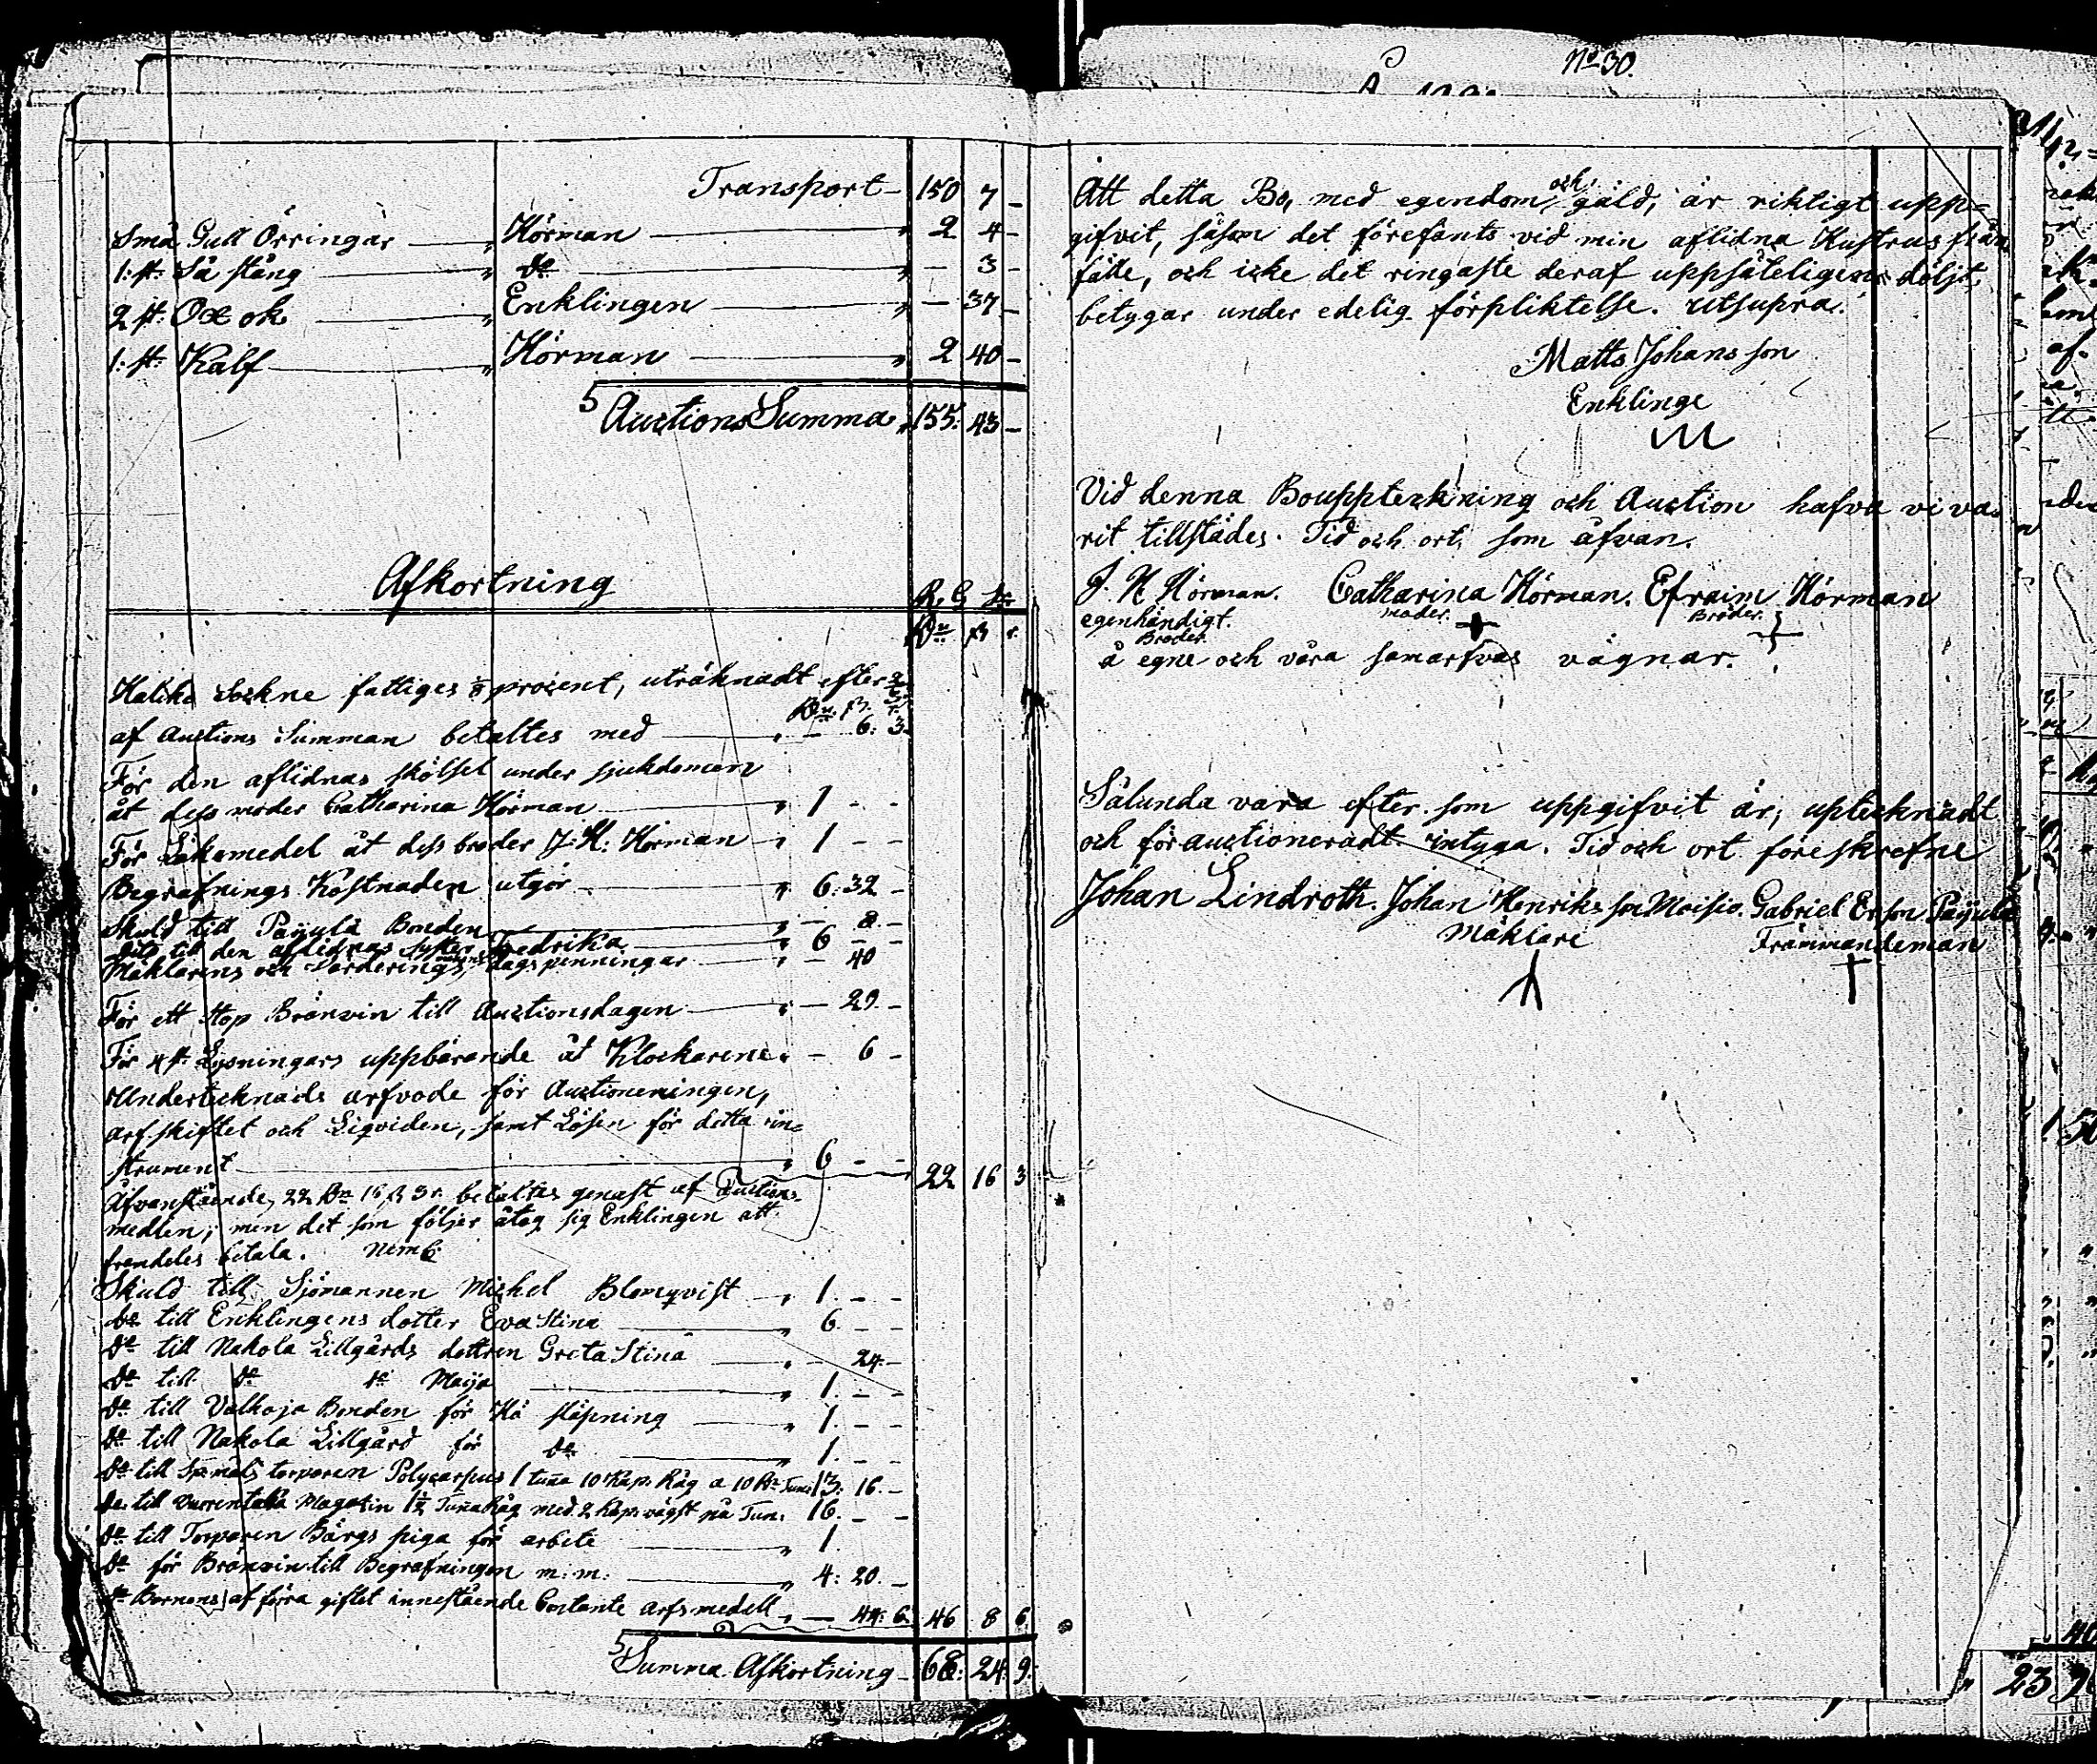 Transport – 150 7 –
Små Gull Örringar — „ Hörman — „ 2 4 –
1: st: Så stång — „ do — „ – 3 –
2 st: Ox ok — „ Enklingen — „ – 37 –
1: st: Kalf — „ Hörman — „ 2 40 –
Auctions Summa „ 155: 43 –
Afkortning
R. G. S.
Rdr ß r.
Haliko Sockne fattiges procent, uträknadt efter
Rdr. ß. r.
af Auctions Summan betaltes med — „ – 6: 3.
För den aflidnas skötsel under sjukdomen
åt dess moder Catharina Hörman — „ 1 – –
För Läkemedel åt dess broder J. H: Hörman – „ 1 – –
Begrafnings Kostnaden utgör — „ 6: 32 –
Skuld till Päyylä Bonden — „ – 8 –
dito til den aflidnas syster Fredrika — „ 6 – –
Mäklarens och Värderings dagspenningar — „ – 40
För ett stop Bränvin till Auctionsdagen — „ – 29. –
För 4 st: Lysningars uppbärande åt Klockarene „ – 6 –
Undertecknads arfvode för Auctioneringen,
arfskiftet och Liqviden, samt Lösen för detta in=
strument — „ 6 – – 22 16 3
Åfvanstående, 22 Rdr 16 ß 3 r. betaltes genast af Auctions-
medlen, men det som följer åtog sig Enklingen att
framdeles betala. Neml:
Skuld till Sjömannen Michel Blomqvist — „ 1. – –
do till Enklingens dotter Eva Stina — „ 6. – –
do till Nakola Lillgårds dottren Greta Stina — „ – 24 –
do till do do Maija — „ 1. – –
do till Valkoja Bonden för Hö släpning — „ 1. – –
do till Nakola Lillgård för do — „ 1. – –
do till torparen Polycarpus 1 tuña 10 Kap: Råg a 10 Rdr Tun: 13: 16. –
do till Magasin 1½ Tuña Råg med 2 Kap: vägst på Tun: 16. – –
do till Torparen Bärgs piga för arbete — „ 1
do för Bränvin till Begrafningen m: m: — „ 4: 20. –
do Barnens af förra giftet innestående Contante arfsmedell „ – 44: 6. 46 8 6
Summa Afkortning – 68: 24: 9.
No 30.
Att detta Bo, med egendom och gäld, är riktigt upp=
gifvit, såsom det förefants vid min aflidna Hustrus från
fälle, och icke det ringaste deraf uppsåteligen döljt,
betygar under edelig förpliktelse. Utsupra.
Matts Johansson
Enklinge
Vid denna Bouppteckning och Auction hafva vi va=
rit tillstädes. Tid och ort, som åfvan.
J. H Hörman. Catharina Hörman. Efraim Hörman
egenhändigt. moder. Broder.
Broder.
å egne och våra samarfvas vägnar.
Sålunda vara efter som uppgifvit är, uptecknadt
och förauctioneradt intyga. Tid och ort föreskrefne
Johan Lindroth. Johan Henriksson Moisio. Gabriel Erson Päyylä
Mäklare Främmandeman
23